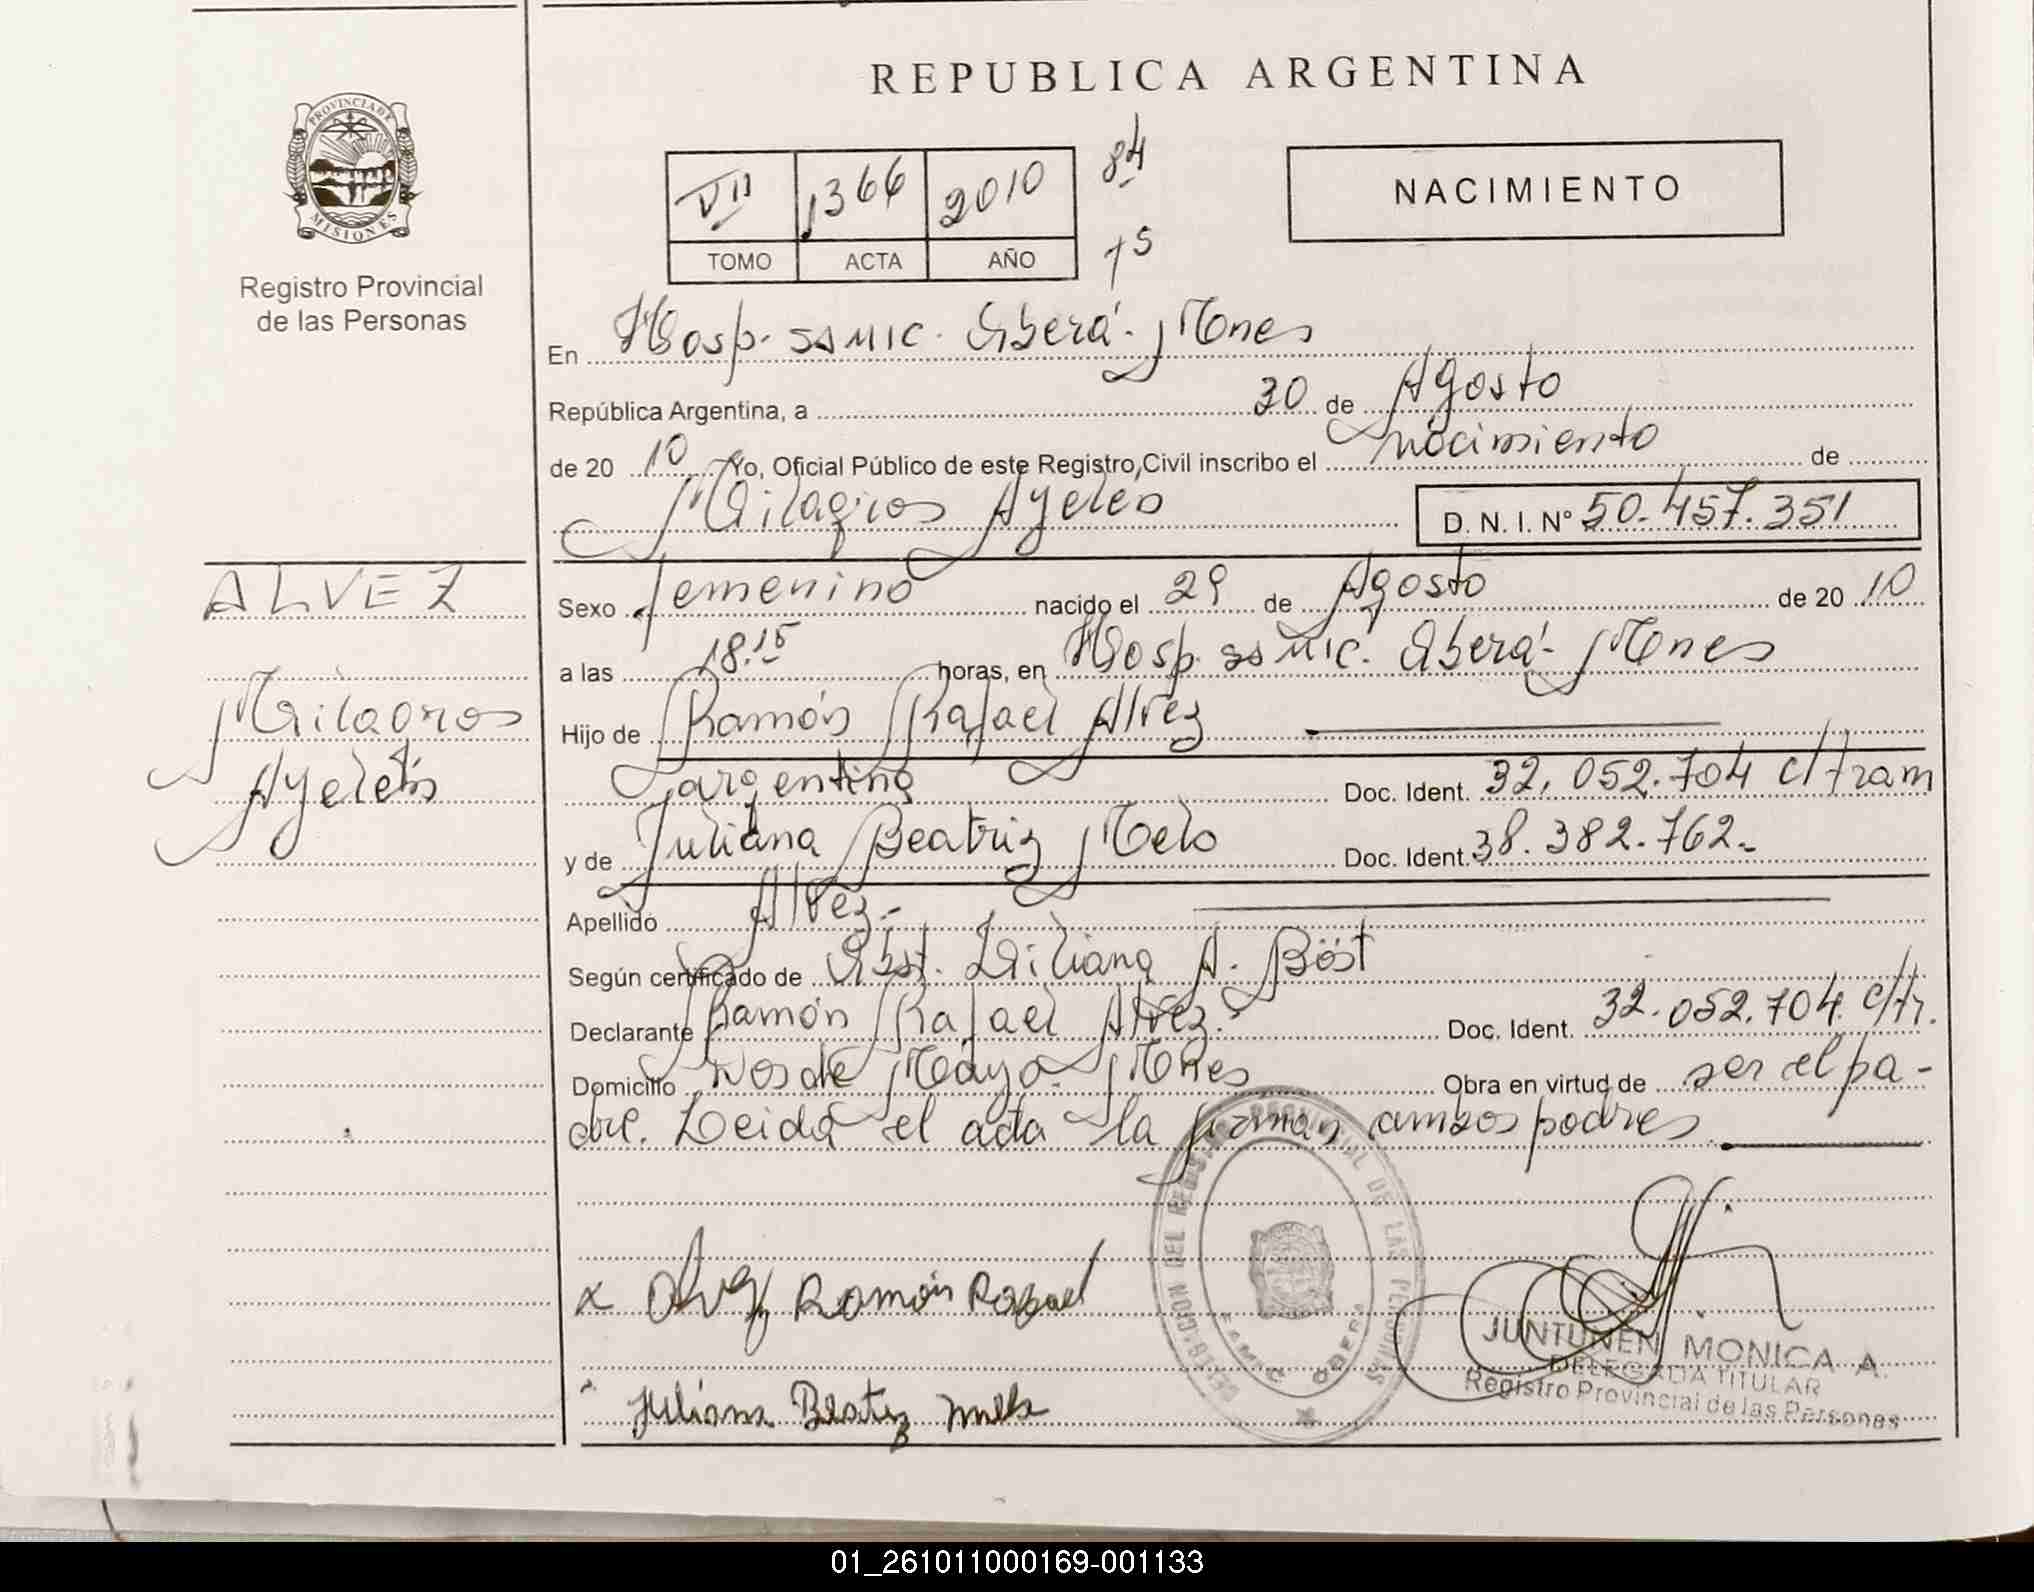 REPUBLICA ARGENTINA
PROVINCIA DE
MISIONES
Registro Provincial
de las Personas
VII 1366 2010 84
TOMO ACTA AÑO 75
NACIMIENTO
En Hosp. SAMIC. Oberá. Mnes
República Argentina, a 30 de Agosto
de 20 10 Yo, Oficial Público de este Registro Civil inscribo el nacimiento de
Milagros Ayelén D. N. I. N° 50.457.351
ALVEZ
Milagros
Ayelén
Sexo femenino nacido el 29 de Agosto de 20 10
a las 18.15 horas, en Hosp. SAMIC. Oberá- Mnes
Hijo de Ramón Rafael Alvez
argentino Doc. Ident. 32.052.704 c/tram
y de Juliana Beatriz Melo Doc. Ident. 38.382.762.-
Apellido Alvez.-
Según certificado de Obst. Liliana A. Böst
Declarante Ramón Rafael Alvez.- Doc. Ident. 32.052.704 c/tr.
Domicilio 25 de Mayo. Mnes Obra en virtud de ser el pa-
dre. Leída el acta la firman ambos padres
x Alvez Ramón Rafael
Juliana Beatriz Melo
DELEGACION DEL REGISTRO PROVINCIAL DE LAS PERSONAS
SAMIC OBERA
JUNTUNEN MONICA A.
DELEGADA TITULAR
Registro Provincial de las Personas
01_261011000169-001133